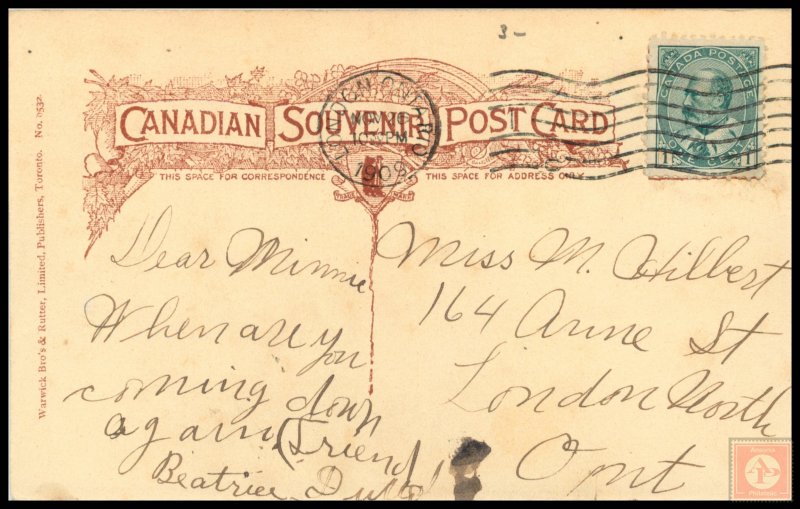 3-
CANADA POSTAGE
1 ONE CENT 1
LONDON ONTARIO
NOV 16
PM
1908
CANADIAN SOUVENIR POST CARD
THIS SPACE FOR CORRESPONDENCE
THIS SPACE FOR ADDRESS ONLY
TRADE MARK
Warwick Bro's & Rutter, Limited, Publishers, Toronto. No. 0532.
Dear Minnie
When are you
coming down
again (Friend
Beatrice
Miss M. Hilbert
164 Anne St
London North
Ont